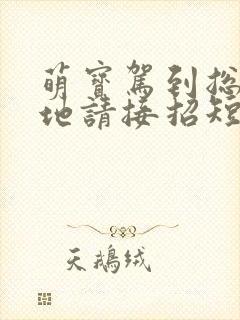 萌寶駕到总
地請接招短
天鵝绒